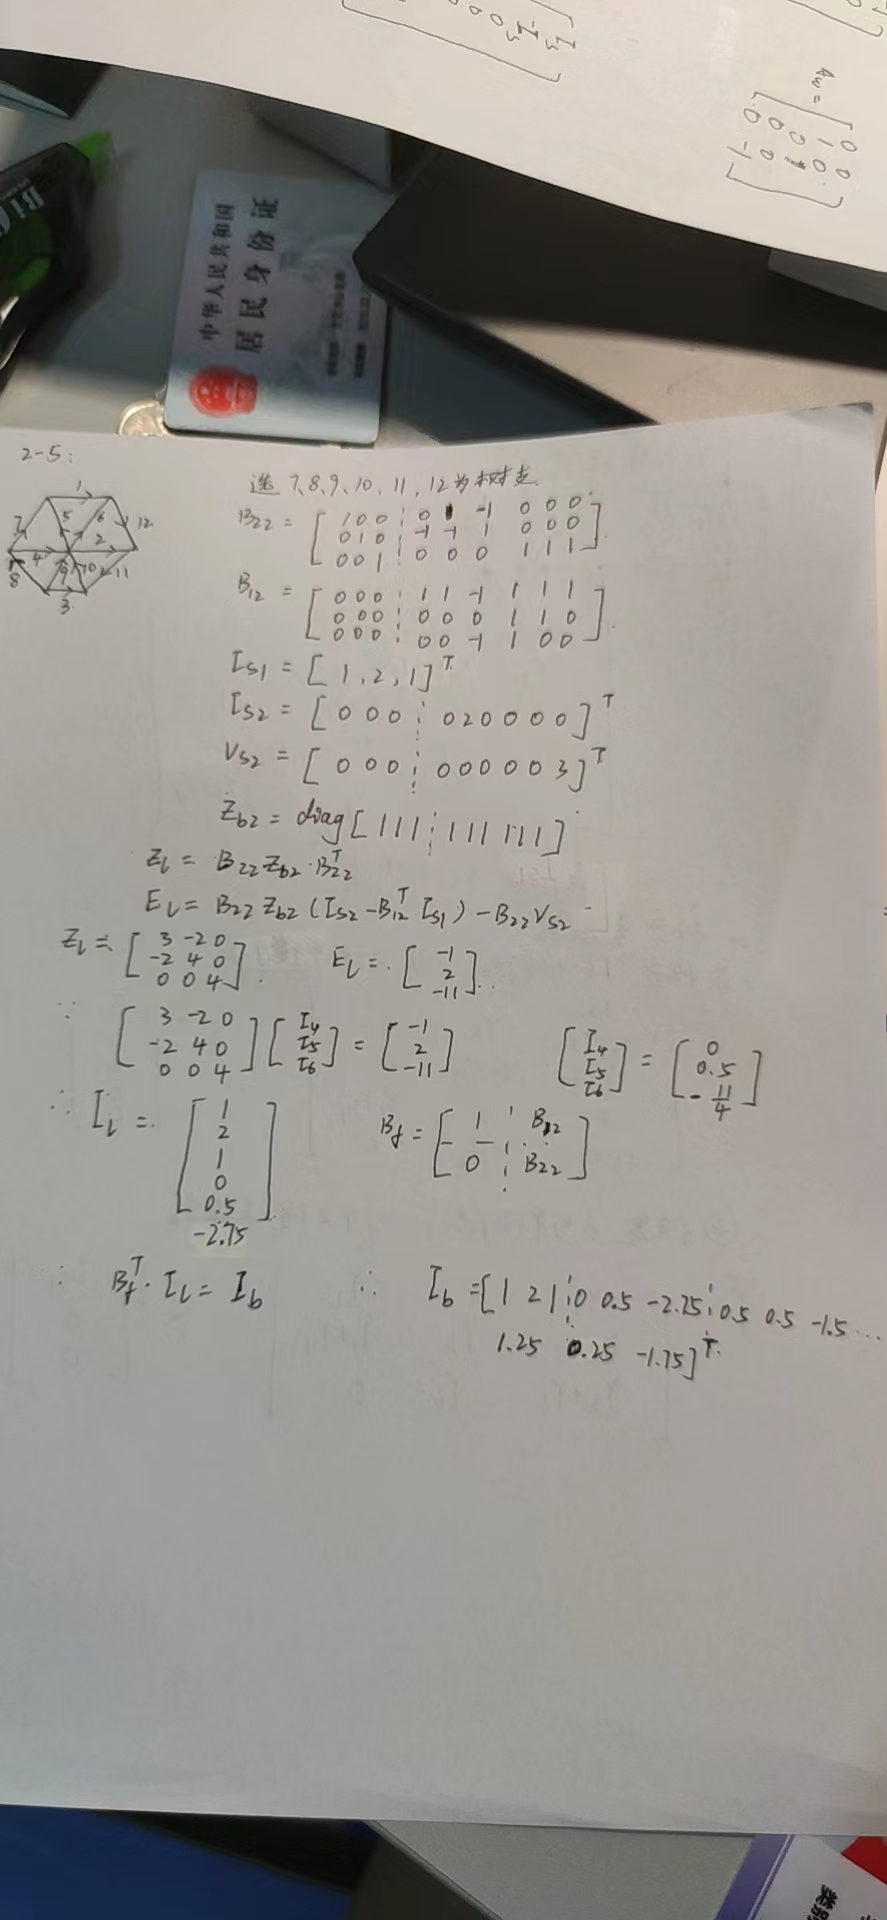 Aw = [ 0 0
1 0
0 0
0 -1 ]
中华人民共和国
居民身份证
2-5:
1
7 5 6 12
4 2
8 9 10 11
3
选 7、8、9、10、11、12为树支.
B22 = [ 1 0 0 ⋮ 0 1 -1 0 0 0
0 1 0 ⋮ -1 -1 1 0 0 0
0 0 1 ⋮ 0 0 0 1 1 1 ].
B12 = [ 0 0 0 ⋮ 1 1 -1 1 1 1
0 0 0 ⋮ 0 0 0 1 1 0
0 0 0 ⋮ 0 0 -1 1 0 0 ].
IS1 = [ 1, 2, 1 ]T
IS2 = [ 0 0 0 ⋮ 0 2 0 0 0 0 ]T
VS2 = [ 0 0 0 ⋮ 0 0 0 0 0 3 ]T
Zb2 = diag [ 1 1 1 ⋮ 1 1 1 1 1 1 ]
Zl = B22 Zb2 · B22T
El = B22 Zb2 (IS2 - B12T IS1) - B22 VS2
Zl = [ 3 -2 0
-2 4 0
0 0 4 ]. El = [ -1
2
-11 ]
∵ [ 3 -2 0
-2 4 0
0 0 4 ] [ I4
I5
I6 ] = [ -1
2
-11 ] [ I4
I5
I6 ] = [ 0
0.5
-11/4 ]
∴ Il = [ 1
2
1
0
0.5
-2.75 ] Bf = [ 1 ⋮ B12
0 ⋮ B22 ]
∵ BfT · Il = Ib ∴ Ib = [ 1 2 1 ⋮ 0 0.5 -2.75 ⋮ 0.5 0.5 -1.5 ...
1.25 0.25 -1.75 ]T.